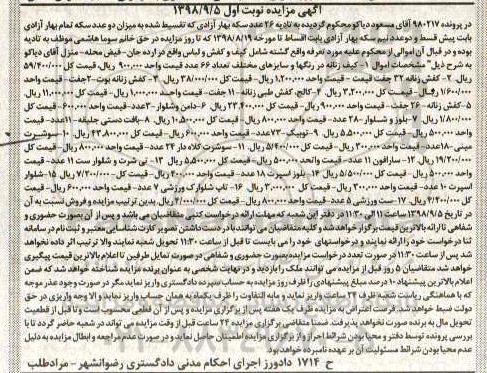 آگهی مزایده نوبت اول ۱۳۹۸/۹/۵
در پرونده ۹۸۰۲۱۷ آقای مسعود دیاکو محکوم گردیده به تادیه ۲۶ عدد سکه بهار آزادی که تقسیط شده به میزان دو عدد سکه تمام بهار آزادی
بابت پیش قسط و دو عدد نیم سکه بهار آزادی بابت اقساط تا مورخه ۱۳۹۸/۸/۱۹ که تا روز مزایده در حق خانم سوما هاشمی موظف به تادیه
بوده و در قبال آن اموالی از محکوم علیه مورد تعرفه واقع گشته شامل کیف و کفش و لباس واقع در ارده جان - فیض محله - منزل آقای دیاکو
به شرح ذیل" مشخصات اموال ۱- کیف زنانه در رنگها و سایزهای مختلف تعداد ۶۶ عدد هر عدد واحد ۹۰۰/۰۰۰ ریال قیمت کل ۵۹/۴۰۰/۰۰۰
ریال ۲- کفش زنانه ۳۲ جفت قیمت - واحد ۱/۲۰۰/۰۰۰ ریال - قیمت کل ۳۸/۰۰۰/۰۰۰ ریال ۳- کفش زنانه بوت - ۲جفت - قیمت واحد
۱/۶۰۰/۰۰۰ ریال - قیمت کل ۳/۲۰۰/۰۰۰ ریال ۴- کالج، کفش طبی زنانه - ۱۱ جفت - قیمت واحد ۱/۰۰۰/۰۰۰ ریال - قیمت کل ۱۱/۰۰۰/۰۰۰ ریال
۵- کفش زنانه - ۲۶ جفت - قیمت واحد ۹۰۰/۰۰۰ ریال - قیمت کل ۲۳/۴۰۰/۰۰۰ ریال ۶- دامن و شلوار - ۳عدد - قیمت واحد ۶۰۰/۰۰۰ - قیمت کل
۱/۸۰۰/۰۰۰ ریال ۷- بلوز و شلوار - ۲۸ عدد - قیمت واحد ۸۰۰/۰۰۰ ریال - قیمت کل ۱۰/۵۰۰/۰۰۰ ریال ۸- بافت دستی جلیقه - ۱۱ عدد - قیمت
واحد ۵۰۰/۰۰۰ ریال - قیمت کل ۵/۵۰۰/۰۰۰ ریال ۹- تونیک - ۷۳عدد - قیمت واحد ۶۰۰/۰۰۰ ریال - قیمت کل ۴۳/۸۰۰/۰۰۰ ریال ۱۰- سوشرت
مینی - ۱۸عدد - قیمت واحد ۳۰۰/۰۰۰ ریال - قیمت کل ۵/۴۰۰/۰۰۰ ریال ۱۱- سوشرت کلاه دار ۲۴ عدد - قیمت واحد ۸۰۰/۰۰۰ ریال - قیمت کل
۱۹/۲۰۰/۰۰۰ ریال ۱۲- سارافون ۱۱ عدد - قیمت واحد ۵۰۰/۰۰۰ ریال - قیمت کل ۵/۵۰۰/۰۰۰ ریال ۱۳- تی شرت و شلوار ست ۱۱ عدد - قیمت
واحد ۵۰۰/۰۰۰ ریال - قیمت کل ۵/۵۰۰/۰۰۰ ریال ۱۴- بلوز اسپرت ۱۸ عدد - قیمت واحد ۴۰۰/۰۰۰ ریال - قیمت کل ۷/۲۰۰/۰۰۰ ریال ۱۵- شلوار
اسپرت ۱۰ عدد - قیمت واحد ۳۰۰/۰۰۰ ریال - قیمت کل ۳/۰۰۰/۰۰۰ ریال ۱۶- تاپ شلوارک ورزشی ۷ عدد - قیمت واحد ۶۰۰/۰۰۰ ریال - قیمت
کل ۴/۲۰۰/۰۰۰ ریال ۱۷- ست ورزشی ۵ عدد - قیمت واحد ۸۰۰/۰۰۰ ریال - قیمت کل ۴/۰۰۰/۰۰۰ ریال. بدین ترتیب مزایده و فروش نسبت به آن
در تاریخ ۱۳۹۸/۹/۵ ساعت ۱۱ الی ۱۱:۳۰ در دفتر این شعبه که مهلت ارائه درخواست کتبی متقاضیان می باشد و پس از آن بصورت حضوری و
شفاهی با ارائه بالاترین قیمت برگزار خواهد شد و کلیه متقاضیان می توانند با در دست داشتن تصویر کارت شناسایی معتبر و ثبت نام در سامانه
ثنا درخواست خود را ارائه نمایند و درخواستهای خود را می بایست تا قبل از ساعت ۱۱:۳۰ تحویل شعبه نمایند والا ترتیب اثر داده نخواهد
شد پس از ساعت ۱۱:۳۰ در صورت تعدد در خواست مزایده بصورت حضوری و شفاهی در صورت تمایل طرفین تا اعلام بالاترین قیمت پیگیری
خواهد شد متقاضیان ۵ روز قبل از مزایده می توانند ملک را بازدید و در نهایت شخصی به عنوان برنده مزایده شناخته خواهد شد که ضمن
اعلام بالاترین پیشنهاد ۱۰ درصد مبلغ پیشنهادی را ظرف روز مزایده به حساب سپرده دادگستری واریز نماید مگر در صورت وجود عذر موجه
که با هماهنگی ریاست محترم ظرف ۲۴ ساعت واریز نماید و مابه التفاوت را ظرف یکماه به همان حساب واریز نماید و الا وجه واریزی در حق
دولت ضبط خواهد شد. فرصت اعتراض به مزایده ظرف یک هفته پس از برگزاری مزایده و پس از آن قطعی محسوب است و تا قبل از قطعیت
تحویل مال به برنده صورت نخواهد پذیرفت. متقاضی برگزاری مزایده ۲۴ ساعت قبل از وقت مزایده می تواند در شعبه حاضر گردد تا با
بررسی پرونده توسط دفتر و محیا بودن شرایط اجراء از برگزاری مزایده اطمینان حاصل نماید و در صورت عدم مراجعه و ابطال مزایده به دلیل
عدم محیا بودن شرایط مسئولیت آن بر عهده نامبرده خواهد بود.
ح ۱۷۱۴ دادورز اجرای احکام مدنی دادگستری رضوانشهر - مرادطلب